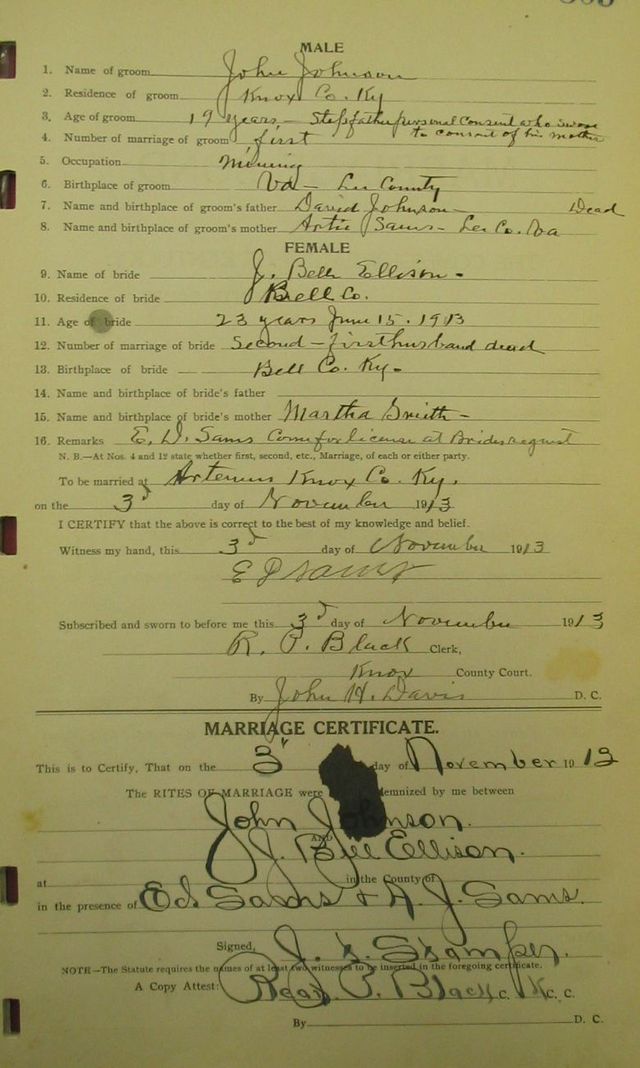 MALE
1. Name of groom John Johnson
2. Residence of groom Knox Co. Ky
3. Age of groom 19 years - Stepfather personal consent who swore
4. Number of marriage of groom first to consent of his mother
5. Occupation Mining
6. Birthplace of groom Va - Lee County
7. Name and birthplace of groom's father David Johnson - Dead
8. Name and birthplace of groom's mother Artie Sams - Lee Co. Va
FEMALE
9. Name of bride J. Bell Ellison -
10. Residence of bride Bell Co.
11. Age of bride 23 years June 15. 1913
12. Number of marriage of bride Second - first husband dead
13. Birthplace of bride Bell Co. Ky -
14. Name and birthplace of bride's father
15. Name and birthplace of bride's mother Martha -
16. Remarks E. D. Sams Come for license at Brides request
N. B.—At Nos. 4 and 12 state whether first, second, etc., Marriage, of each or either party.
To be married at Artemus Knox Co. Ky.
on the 3d day of November 1913
I CERTIFY that the above is correct to the best of my knowledge and belief.
Witness my hand, this 3d day of November 1913
E D Sams
Subscribed and sworn to before me this 3d day of November 1913
R. P. Black Clerk,
Knox County Court.
By John H. Davis D. C.
MARRIAGE CERTIFICATE.
This is to Certify, That on the 3 day of November 1913
The RITES OF MARRIAGE were solemnized by me between
John Johnson.
AND
J. Bell Ellison.
at in the County of
in the presence of Ed. Sams & A. J. Sams.
Signed, J. S. Stamper.
NOTE—The Statute requires the names of at least two witnesses to be inserted in the foregoing certificate.
A Copy Attest: P. Black C. K C. C.
By D. C.